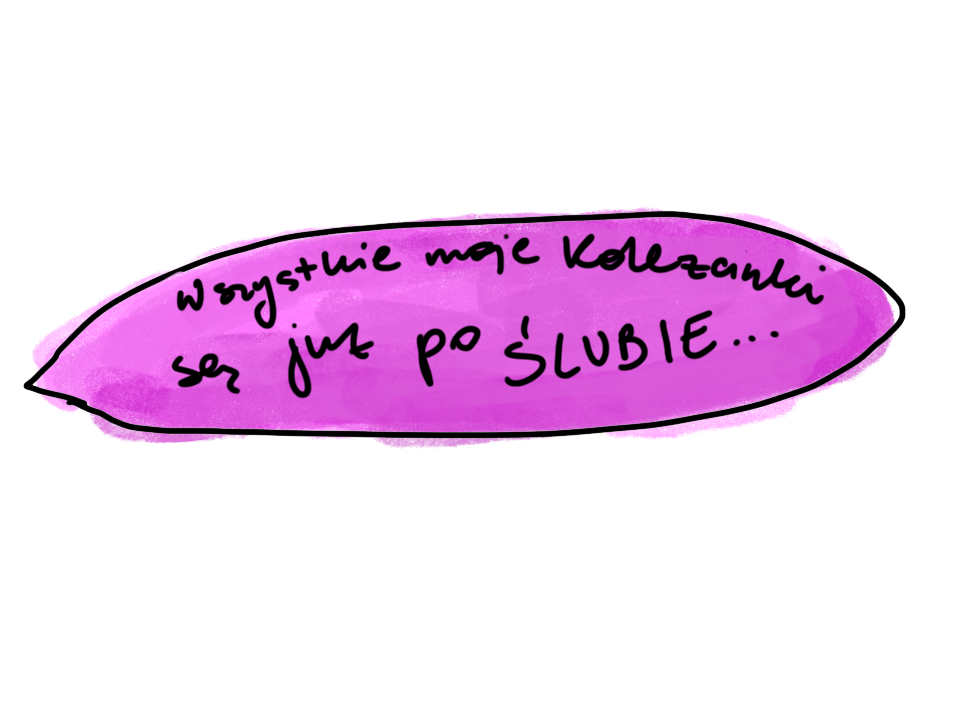 wszystkie moje koleżanki
są już po ŚLUBIE...